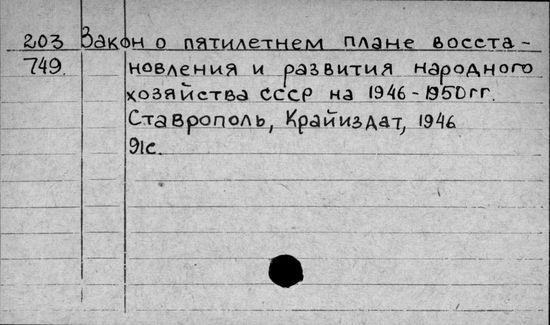 203 Закон о пятилетнем плане восста-
749. новления и развития народного
хозяйства СССР на 1946-1950гг.
Ставрополь, Крайиздат, 1946
91с.